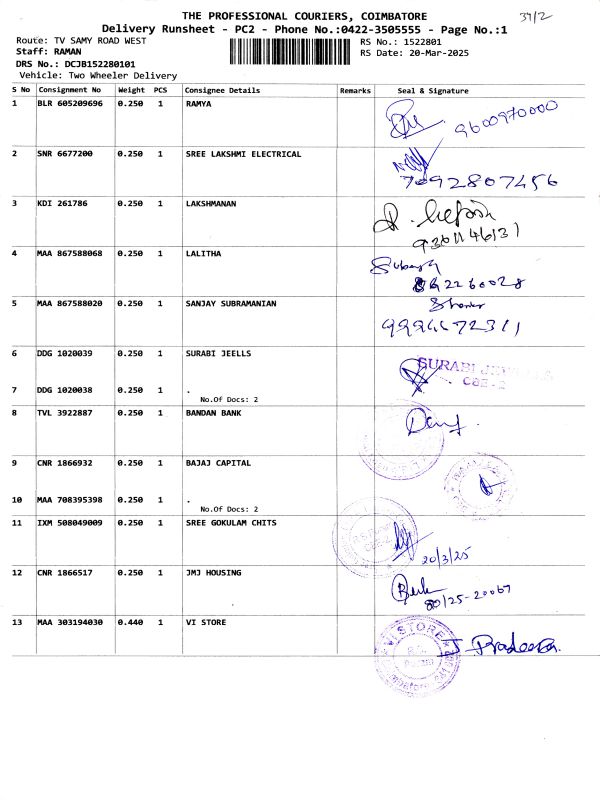 THE PROFESSIONAL COURIERS, COIMBATORE
37/2
Delivery Runsheet - PC2 - Phone No.:0422-3505555 - Page No.:1
Route: TV SAMY ROAD WEST
RS No.: 1522801
Staff: RAMAN
RS Date: 20-Mar-2025
DRS No.: DCJB152280101
Vehicle: Two Wheeler Delivery
S No Consignment No Weight PCS Consignee Details Remarks Seal & Signature
1 BLR 605209696 0.250 1 RAMYA
9600970000
2 SNR 6677200 0.250 1 SREE LAKSHMI ELECTRICAL
7092807456
3 KDI 261786 0.250 1 LAKSHMANAN
9361146131
4 MAA 867588068 0.250 1 LALITHA
5 MAA 867588020 0.250 1 SANJAY SUBRAMANIAN
6 DDG 1020039 0.250 1 SURABI JEELLS
SURABI
CBE-2
7 DDG 1020038 0.250 1 .
No.Of Docs: 2
8 TVL 3922887 0.250 1 BANDAN BANK
9 CNR 1866932 0.250 1 BAJAJ CAPITAL
10 MAA 708395398 0.250 1 .
No.Of Docs: 2
11 IXM 508049009 0.250 1 SREE GOKULAM CHITS
20/3/25
12 CNR 1866517 0.250 1 JMJ HOUSING
13 MAA 303194030 0.440 1 VI STORE
VI STORE
R.S.
Puram
J. Pradeepa.